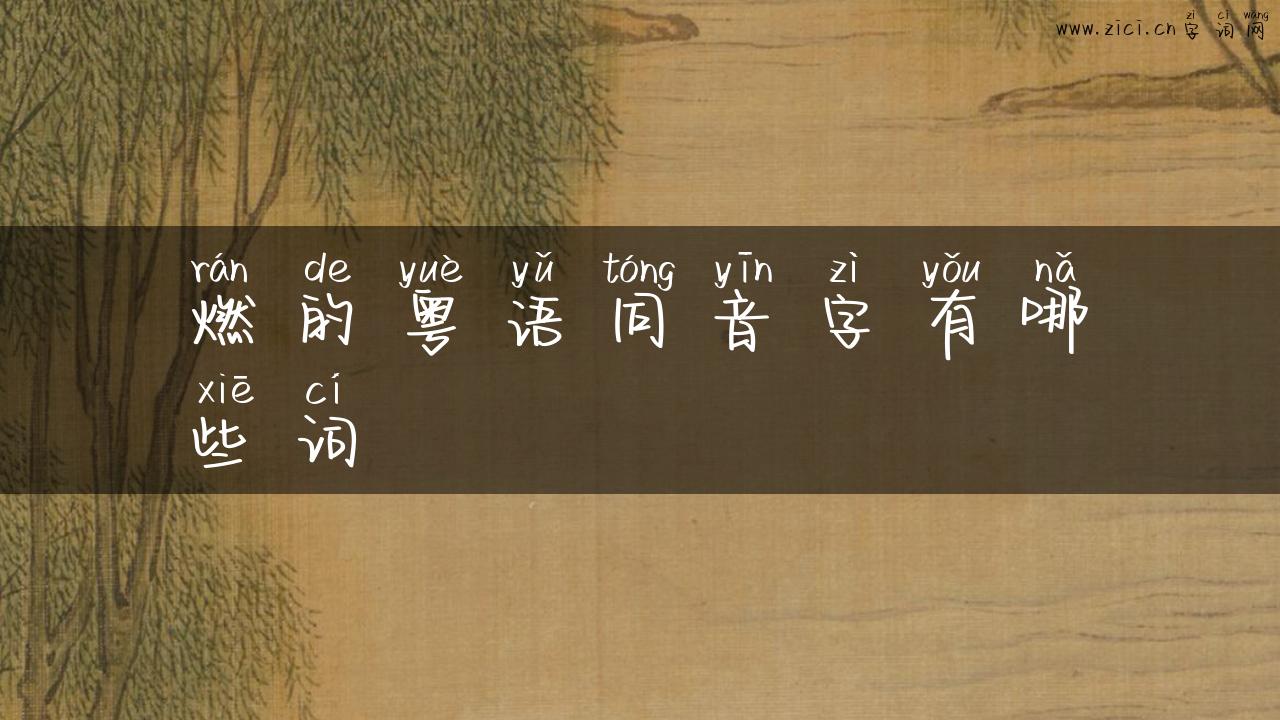 zì cí wǎng
www.zici.cn 字 词 网
rán de yuè yǔ tóng yīn zì yǒu nǎ
燃 的 粤 语 同 音 字 有 哪
xiē cí
些 词